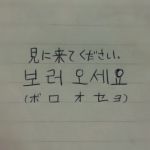 見に来てください.
보러 오세요
(ボ ロ オ セ ヨ)